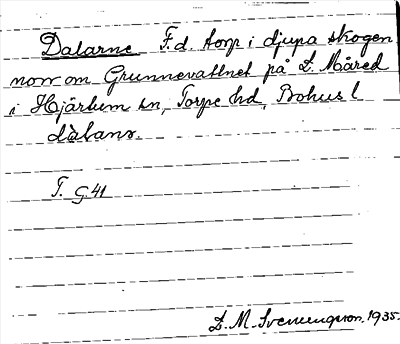 Dalarne F.d. torp i djupa skogen
norr om Grunnevattnet på L. Måred
i Hjärtum sn, Torpe hd, Bohus l
T. G.41
L. M. Svenungsson. 1935.